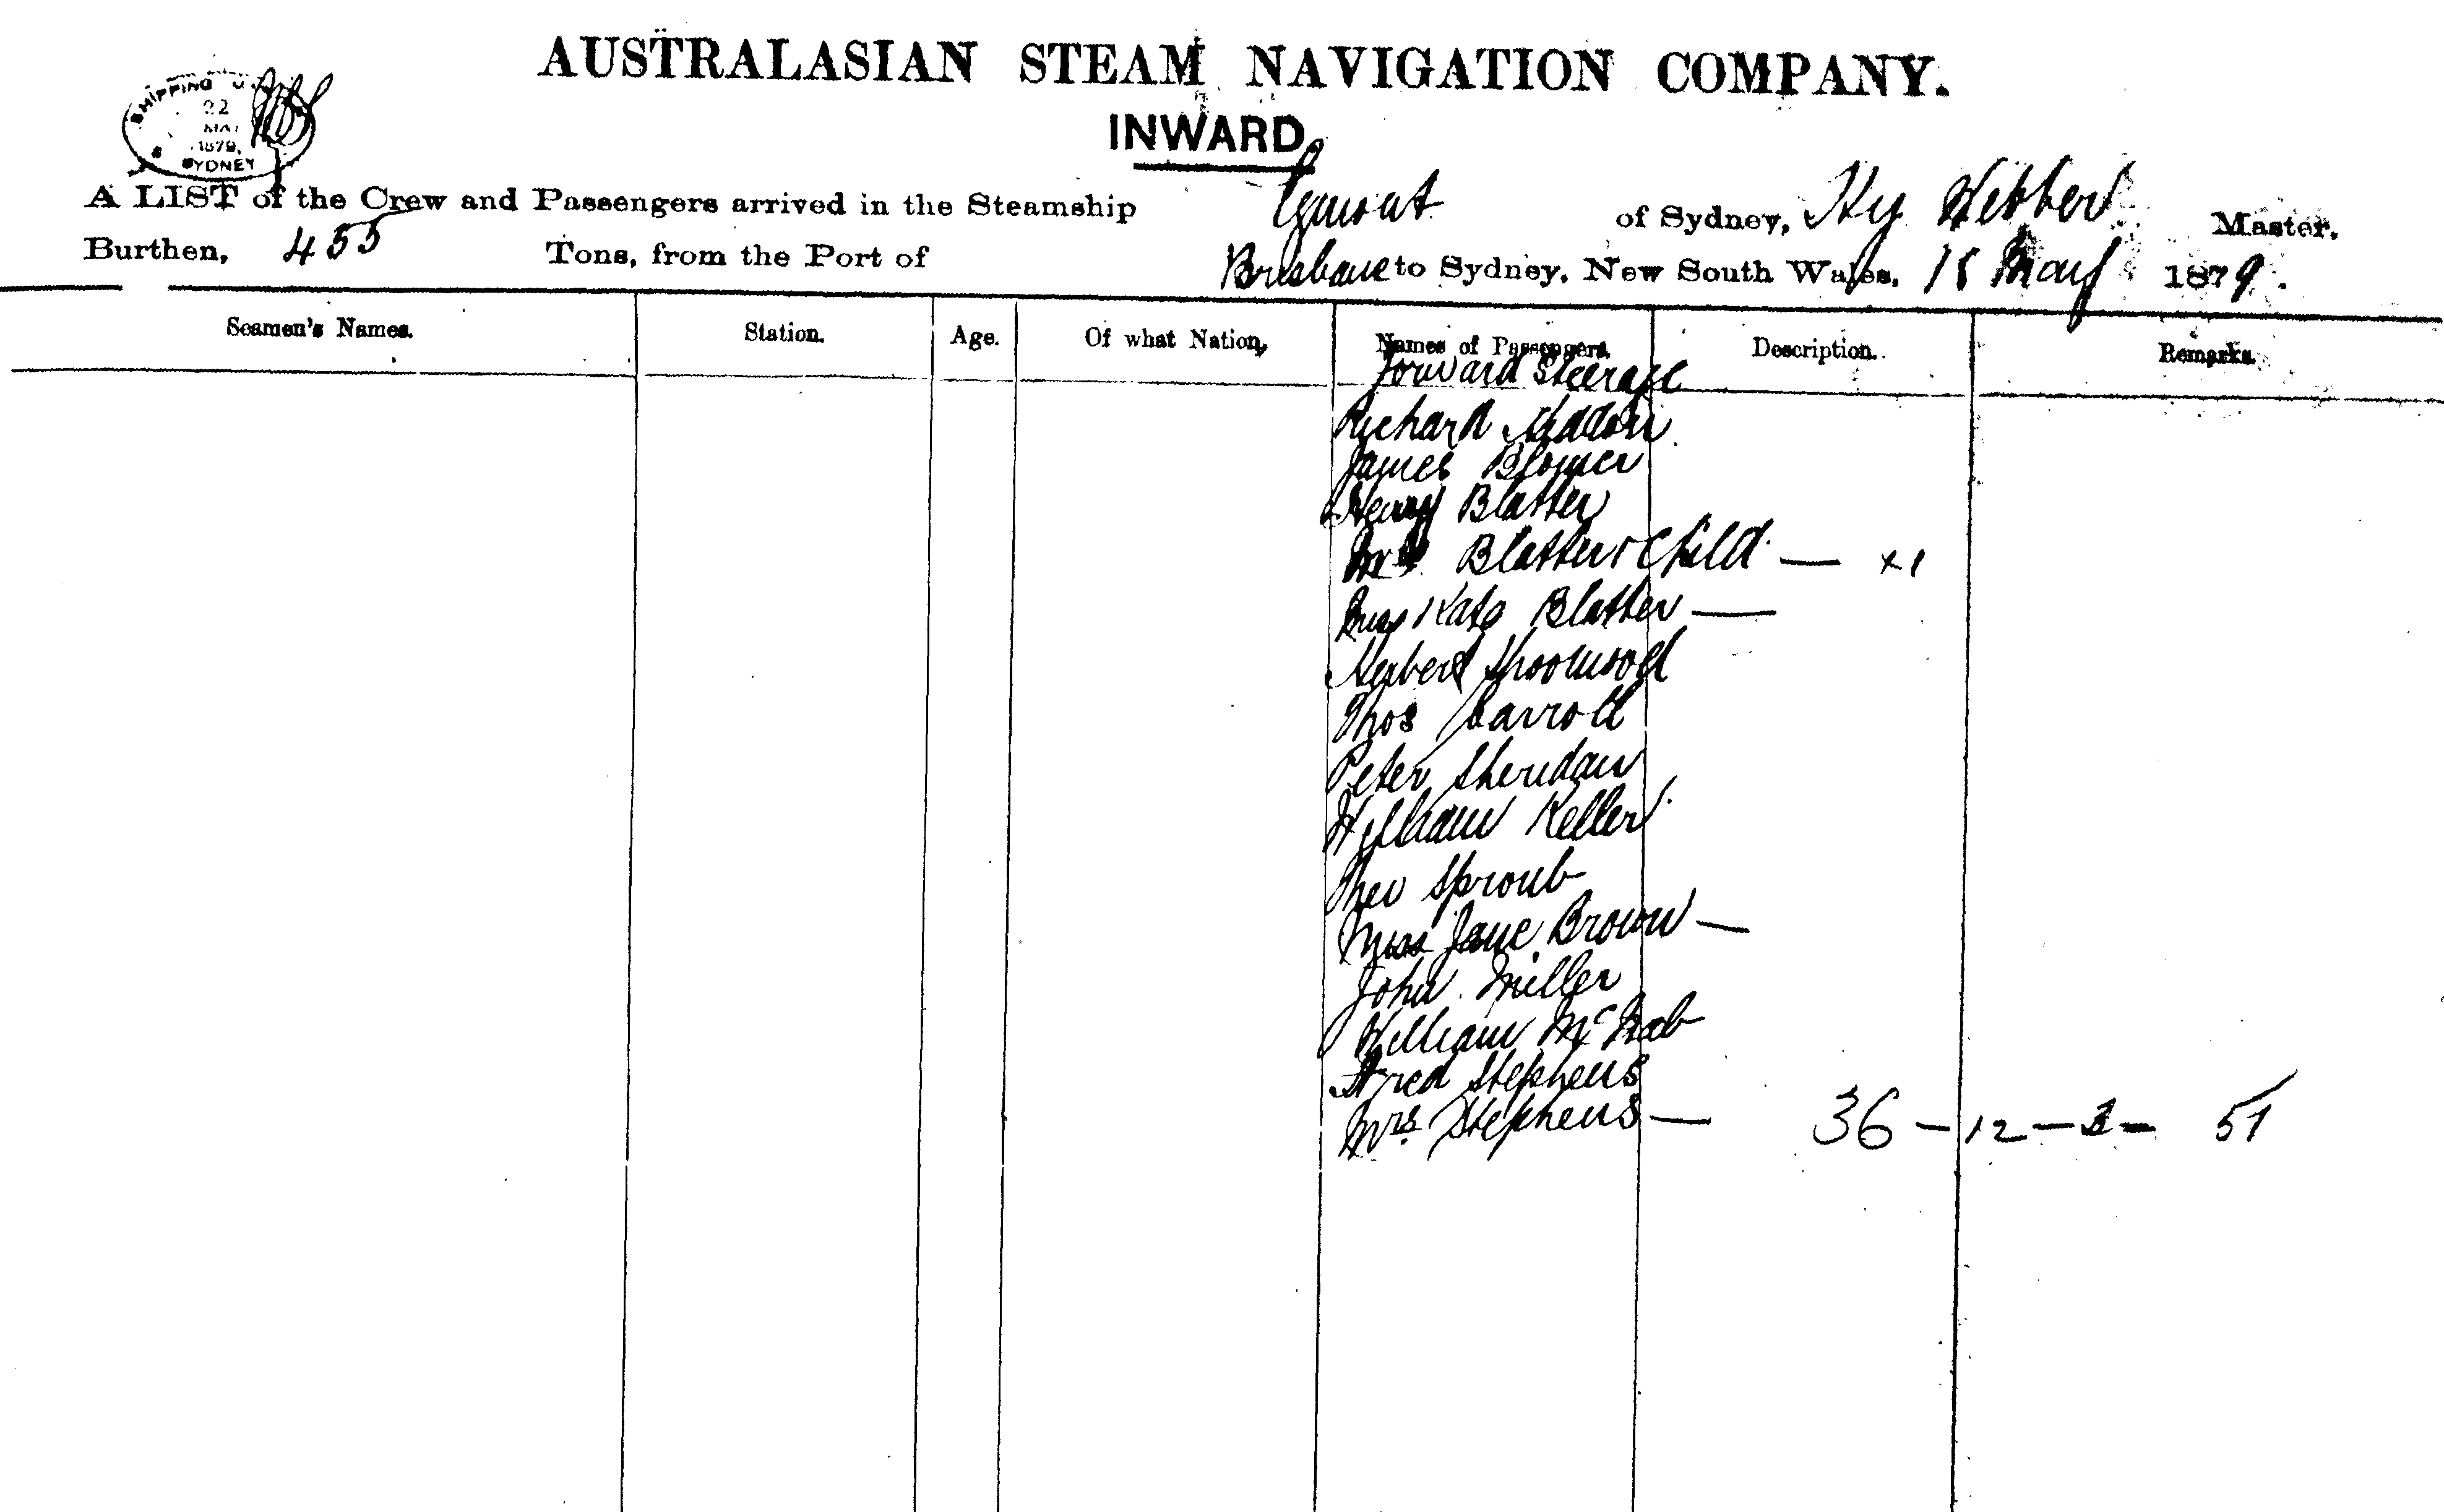 AUSTRALASIAN STEAM NAVIGATION COMPANY.
INWARD
SHIPPING
22
MAY
1879
SYDNEY
A LIST of the Crew and Passengers arrived in the Steamship Egmont of Sydney, Hy Webber Master.
Burthen, 455 Tons, from the Port of Brisbane to Sydney, New South Wales, 18 May 1879.
Seamen's Names. Station. Age. Of what Nation, Names of Passengers. Description. Remarks.
Forward Steerage
Richard
James
Henry Blatter
Mrs Blatter & Child — x 1
Miss Kate Blatter —
Herbert
Thos Carroll
Peter Sheridan
William Keller
Sproub
Miss Jane Brown —
John Miller
William McNab
Fred Stephens
Mrs Stephens — 36 — 12 — 3 — 51